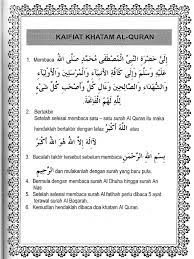 KAIFIAT KHATAM AL-QURAN
1. Membaca إِلَى حَضْرَةِ النَّبِيِّ الْمُصْطَفَى مُحَمَّدٍ صَلَّى اللهُ
عَلَيْهِ وَسَلَّمَ وَإِلَى كَافَّةِ الْأَنْبِيَاءِ وَالْمُرْسَلِينَ وَالْأَوْلِيَاءِ
لَهُمُ الْفَاتِحَة
2. Bertakbir
Setelah selesai membaca satu - satu surah Al Quran itu maka
hendaklah bertakbir dengan lafaz اللهُ أَكْبَرُ atau
لَا إِلَهَ إِلَّا اللهُ وَاللهُ أَكْبَرُ
3. Bacalah takbir tersebut sebelum membaca بِسْمِ اللهِ الرَّحْمٰنِ
الرَّحِيمِ dan mulakanlah dengan surah yang baru pula.
4. Bermula dengan membaca surah Al Dhuha hingga surah An
Nas
5. Setelah selesai membaca surah Al fatihah perlu dibaca 5 ayat
terawal surah Al Baqarah.
6. Kemudian hendaklah dibaca doa khatam Al Quran